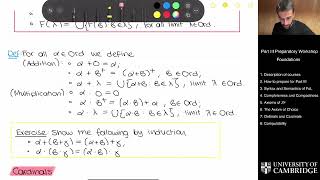 F(λ) = ⋃{F(β): β∈λ}, for all limit λ∈Ord.
Def: For all α∈Ord we define
(Addition): • α+0 = α;
• α+β⁺ = (α+β)⁺, β∈Ord;
• α+λ = ⋃{α+β: β∈λ}, limit λ∈Ord.
(Multiplication) • α·0 = 0
• α·β⁺ = (α·β)+α, β∈Ord;
• α·λ = ⋃{α·β: β∈λ}, limit λ∈Ord.
Exercise: Show the following by induction
• α+(β+γ) = (α+β)+γ,
• α·(β·γ) = (α·β)·γ
Cardinals
Part III Preparatory Workshop
Foundations
1. Description of courses
2. How to prepare for Part III
3. Syntax and Semantics of FoL
4. Completeness and Compactness
5. Axioms of ZF
6. The Axiom of Choice
7. Ordinals and Cardinals
8. Computability
UNIVERSITY OF
CAMBRIDGE